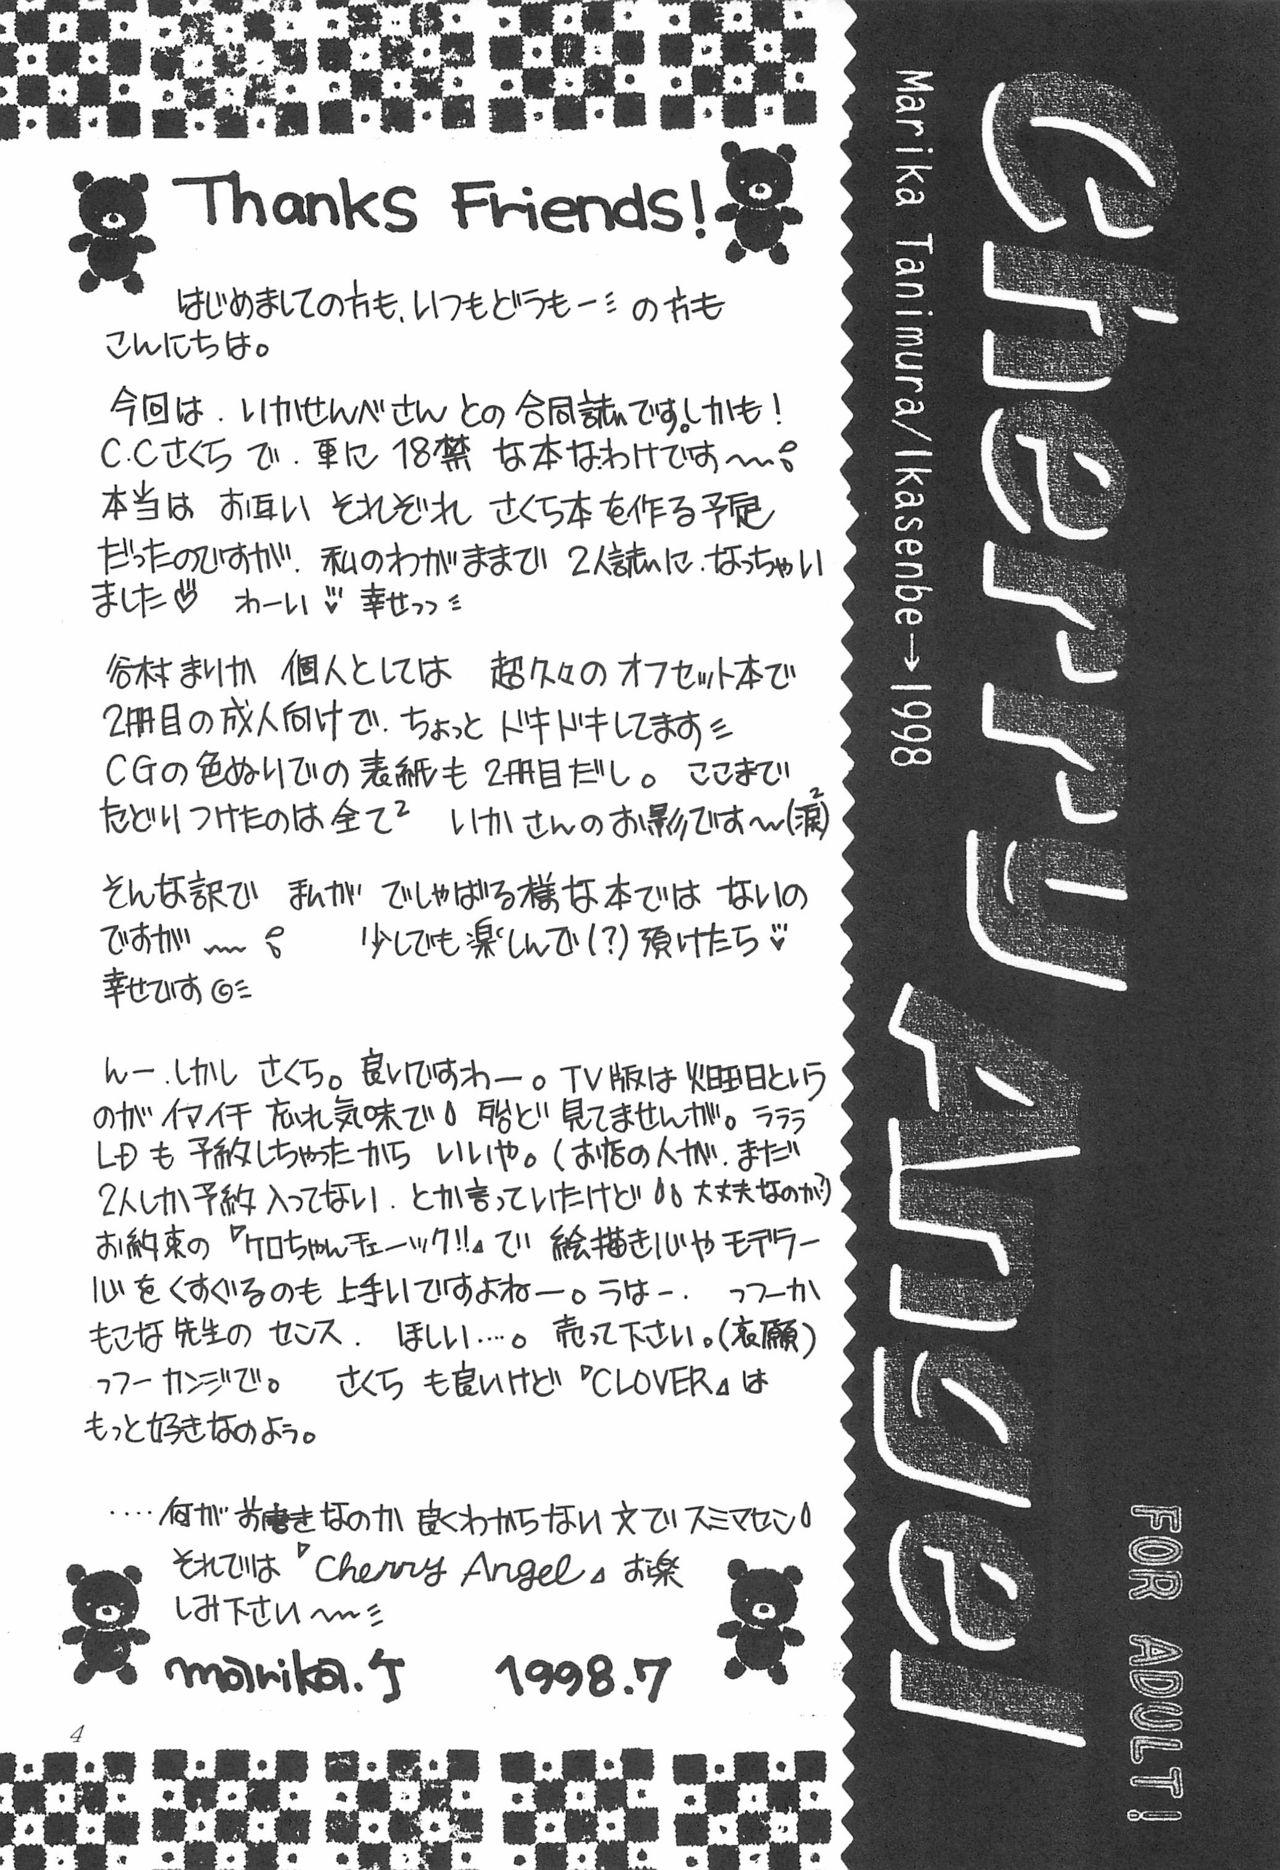 Thanks Friends!
はじめましての方も、いつもどうもーの方も
こんにちは。
今回は、いかせんべさんとの合同誌です。しかも!
C.Cさくらで、更に18禁な本なわけです〜
本当はお互いそれぞれさくら本を作る予定
だったのですが、私のわがままで2人誌に、なっちゃい
ました♡ わーい♡ 幸せっっ
谷村まりか個人としては 超久々のオフセット本で
2冊目の成人向けで、ちょっとドキドキしてます
CGの色ぬりでの表紙も2冊目だし。ここまで
たどりつけたのは全て² いかさんのお影です〜(涙)²
そんな訳で まんが でしゃばる様な本では ないの
ですが〜 少しでも楽しんで(?)頂けたら♡
幸せです
んー、しかし さくら。良いですわー。TV版は火曜日という
のがイマイチ 忘れ気味で 殆ど見てませんが。ラララ
LDも予約しちゃったから いいや。(お店の人が、まだ
2人しか予約入ってない、とか言っていたけど 大丈夫なのか?)
お約束の『ケロちゃんチェーック!!』で 絵描き心やモデラー
心をくすぐるのも上手いですよねー。うはー、 っつーか
もこな先生の センス、 ほしい‥‥。売って下さい。(哀願)
っつーカンジで。 さくら も良いけど『CLOVER』は
もっと好きなのよう。
‥‥何が お書きなのか 良くわからない文でスミマセン
それでは『Cherry Angel』お楽
しみ下さい〜
marika.J 1998.7
4
Cherry Angel
Marika Tanimura/Ikasenbe→1998
FOR ADULT!